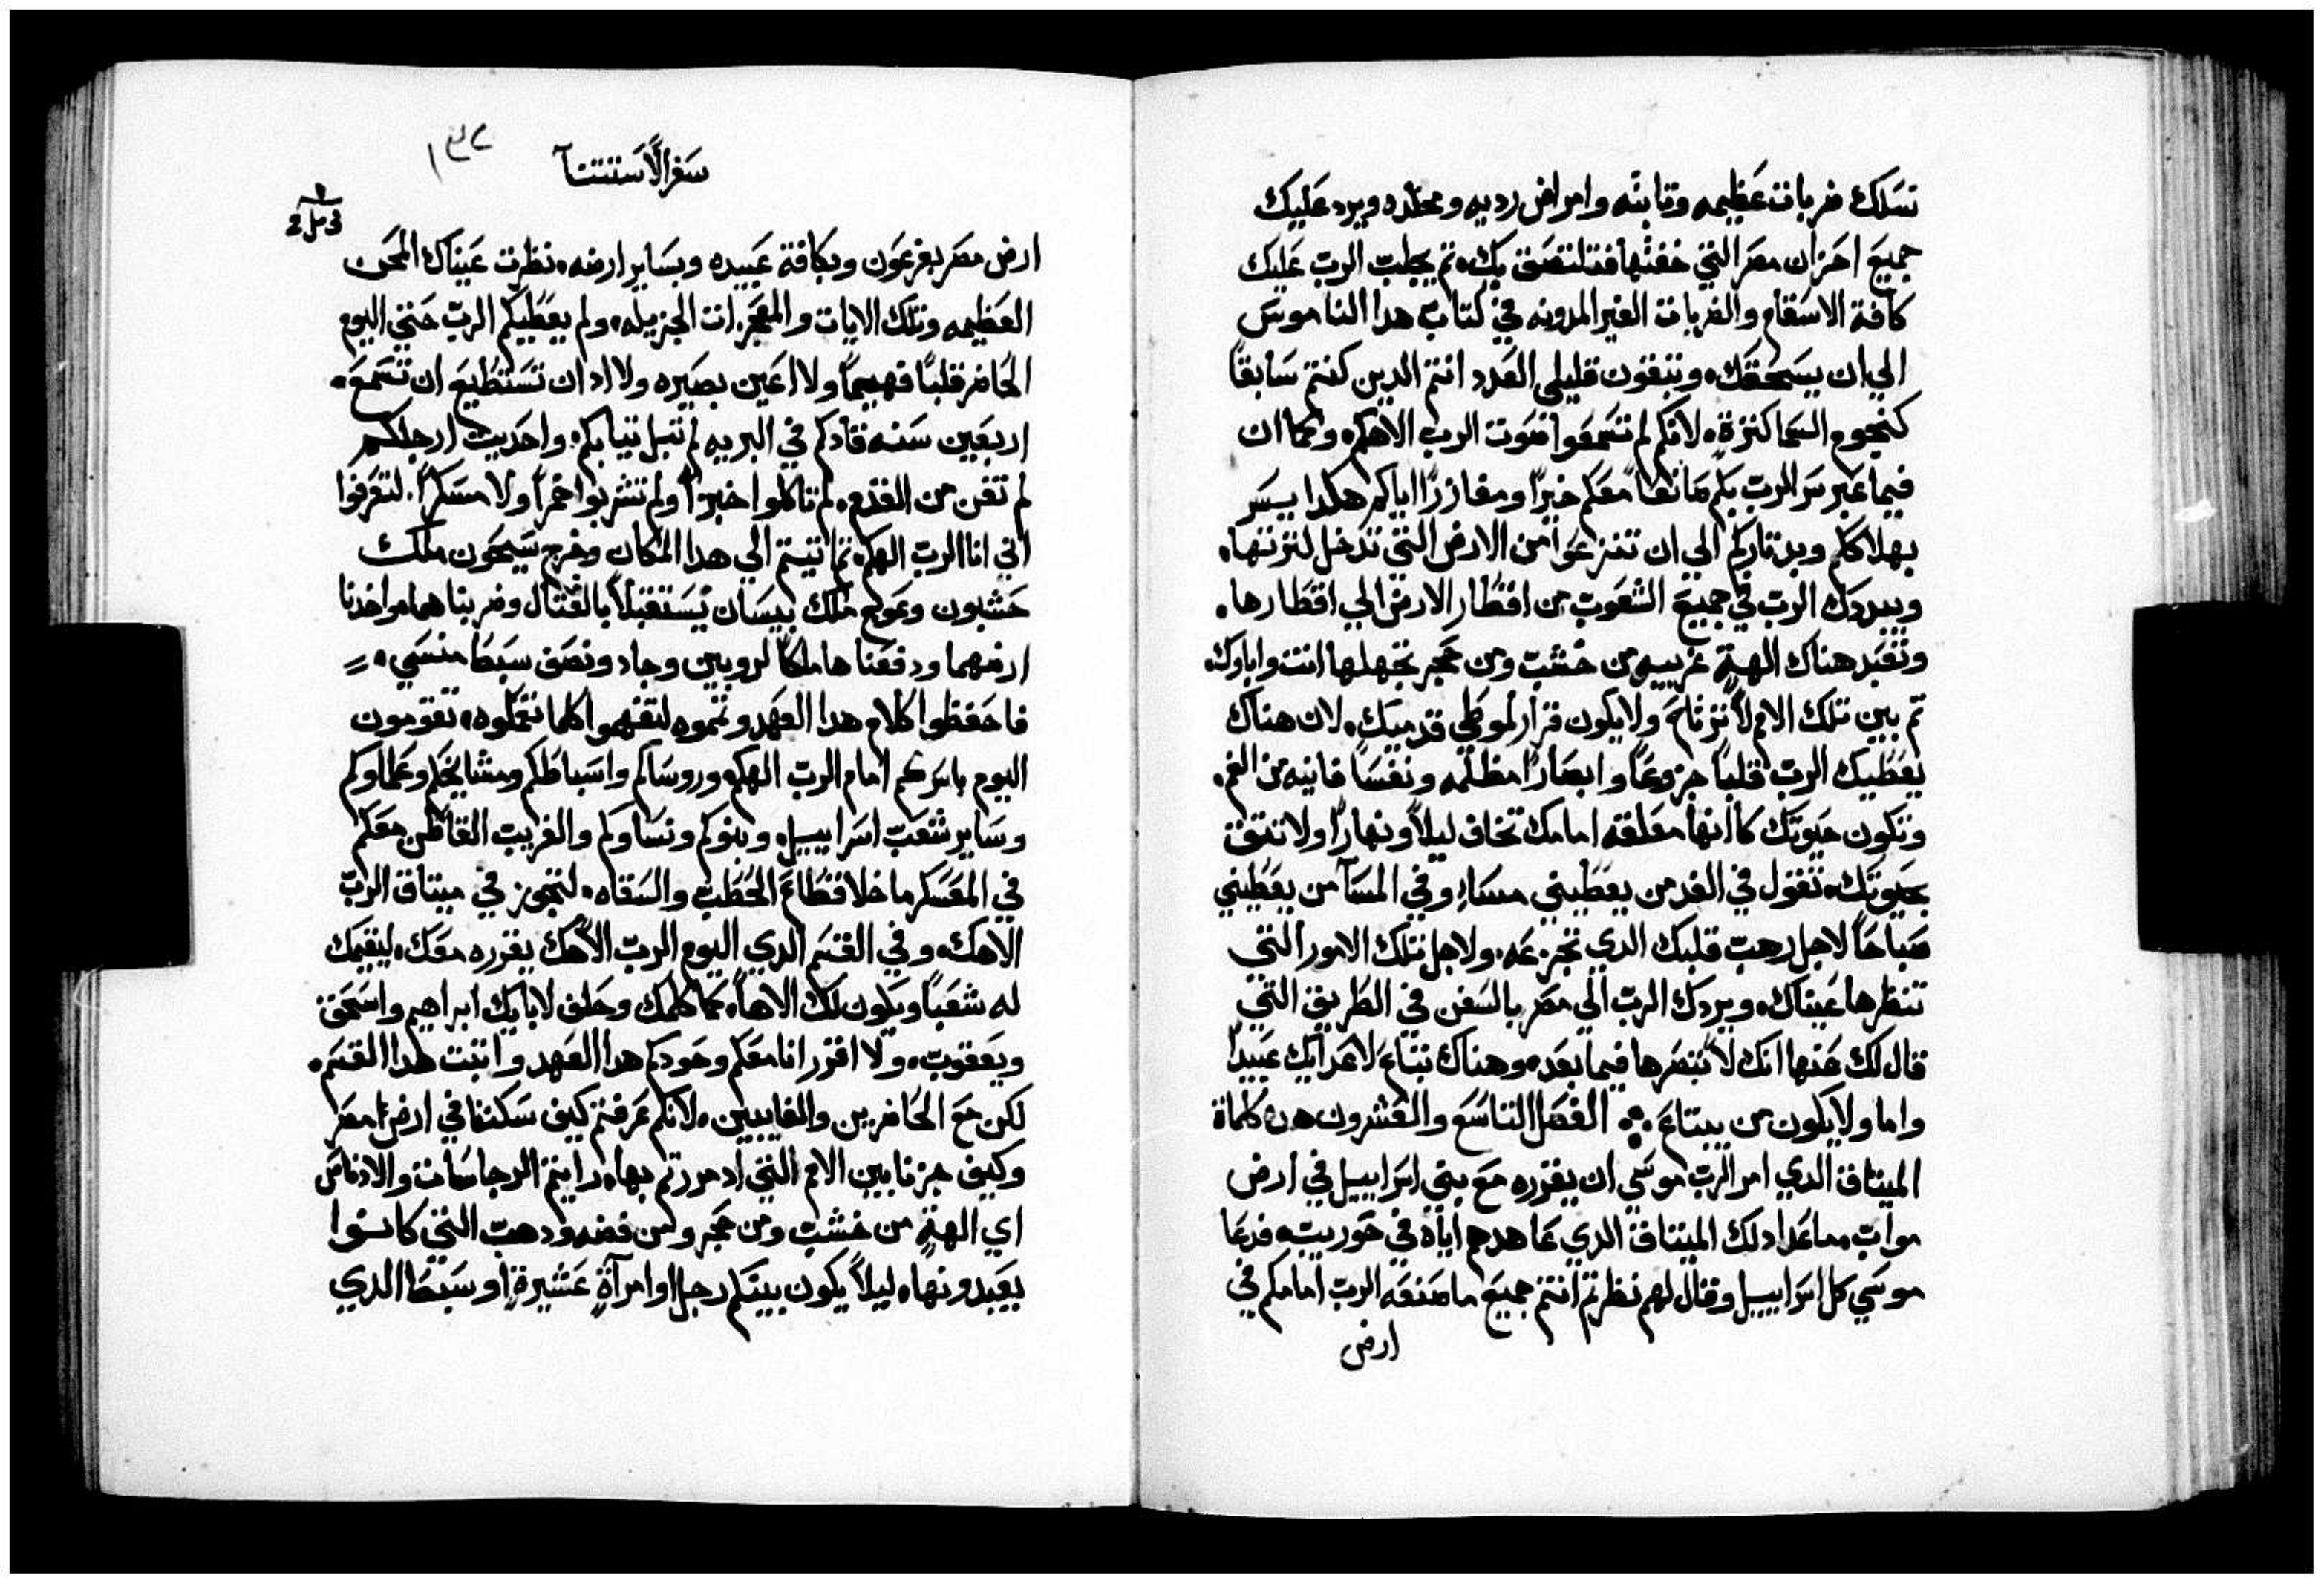 نسلك ضربات عظيمه وتابته وامراض رديه ومخلده ويرد عليك
جميع احزان مصر التي خفتها فتلتصق بك. تم يجلب الرب عليك
كافة الاسقام والضربات الغير المدونه في كتاب هدا الناموس
الي ان يسحقك. وتبقون قليلي العدد انتم الدين كنتم سابقا
كنجوم السما كترة. لانكم لم تسمعوا صوت الرب الاهكم. وكما ان
فيما عبر سر الرب بكم صانعا معكم خيرا ومغازرا اياكم هكدا يسر
بهلاككم وبدتاركم الي ان تنزعوا من الارض التي تدخل لترتها.
ويبددك الرب في جميع الشعوب من اقطار الارض الي اقطارها.
وتعبد هناك الهة غريبه من خشب ومن حجر تجهلها انت واباوك.
تم بين تلك الامم لا ترتاح ولا يكون قرار لموطي قدميك. لان هناك
يعطيك الرب قلبا جزوعا وابصارا مظلمه ونفسا فانيه من الغم.
وتكون حيوتك كانها معلقه امامك تخاف ليلا ونهارا ولا تتق
بحيوتك. تقول في الغد من يعطيني مساء وفي المسآ من يعطيني
صباحا لاجل رهب قلبك الدي تجزعه. ولاجل تلك الامور التي
تنظرها عيناك. ويردك الرب الي مصر بالسفن في الطريق التي
قال لك عنها انك لا تبصرها فيما بعد. وهناك تباع لاعدايك عبيدا
واما ولا يكون من يبتاع ∴ الفصل التاسع والعشرون هده كلماة
الميتاق الدي امر الرب موسي ان يقرره مع بني اسراييل في ارض
مواب. ماعدا دلك الميتاق الدي عاهدهم اياه في حوريب. فدعا
موسي كل اسراييل وقال لهم نظرتم انتم جميع ما صنعه الرب امامكم في
ارض
سفر الاستتنآ
١٣٢
ارض مصر بفرعون وبكافة عبيده وبساير ارضه. نظرت عيناك المحن
العظيمه وتلك الايات والمعجزات الجزيله. ولم يعطيكم الرب حتي اليوم
الحاضر قلبا فهيما ولا اعين بصيره ولا ادان تستطيع ان تسمع.
اربعين سنه قادكم في البريه لم تبل تيابكم. واحديت ارجلكم
لم تفن من القدم. لم تاكلوا خبزا ولم تشربوا خمرا ولا مسكرا. لتعرفوا
اني انا الرب الهكم. تم اتيتم الي هدا المكان وخرج سيحون ملك
حشبون وعوج ملك بيسان يستقبلا بالقتال وضربناهما. واخدنا
ارضهما ودفعناها ملكا لروبين وجاد ونصف سبط منسي.
فاحفظوا كلام هدا العهد وتموه لتفهموا كلما تعملوه. تقومون
اليوم باسركم امام الرب الهكم وروساكم واسباطكم ومشايخكم وعلماوكم
وساير شعب اسراييل. وبنوكم ونساوكم والغريب القاطن معكم
في المعسكر ما خلا قطاع الحطب والسقاه. لتجوز في ميتاق الرب
الاهك. وفي القسم الدي اليوم الرب الاهك يقرره معك. ليقيمك
له شعبا ويكون لك الاها. كما كلمك وحلف لابايك ابراهيم واسحق
ويعقوب. ولا اقرر انا معكم وحودكم هدا العهد واتبت هدا القسم.
لكن مع الحاضرين والغايبين. لانكم عرفتم كيف سكننا في ارض مصر
وكيف جزنا بين الامم التي اد مررتم بها. رايتم الرجاسات والادناس
اي الهة من خشب ومن حجر ومن فضه ودهب التي كانوا
يعبدونها. ليلا يكون بينكم رجل او امرآة عشيرة او سبط الدي